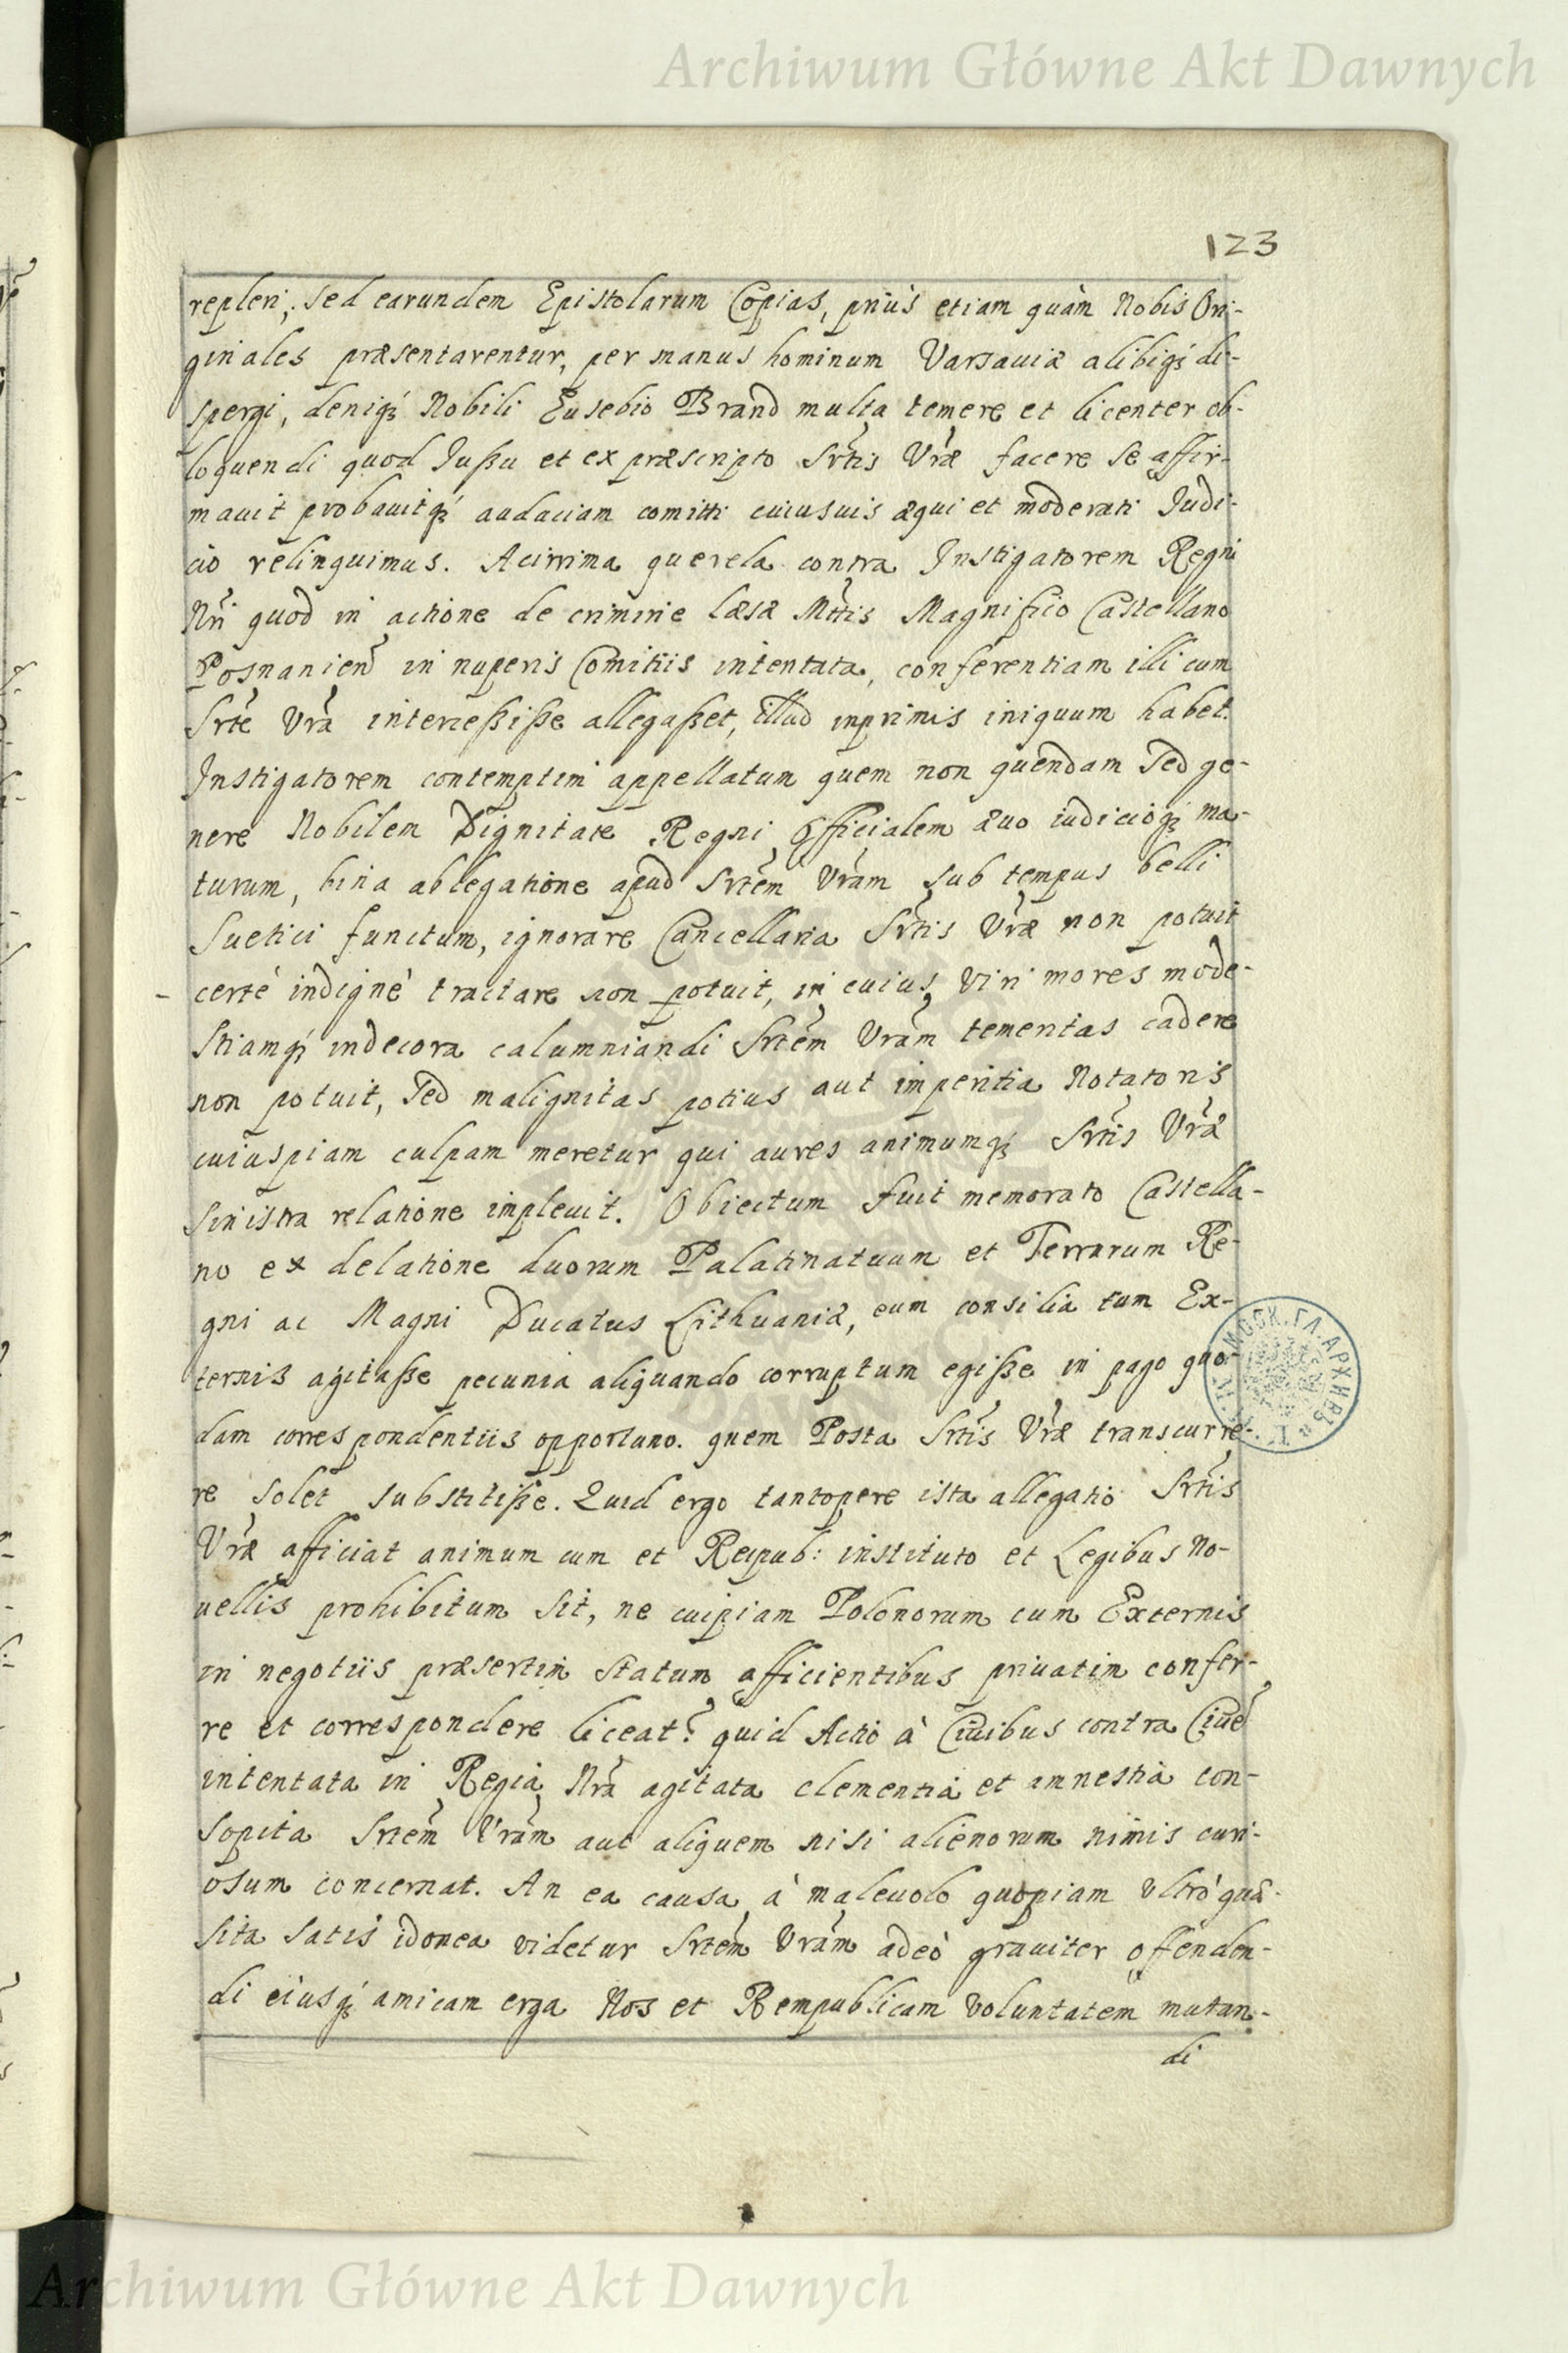 Archiwum Główne Akt Dawnych
123
repleri; sed earundem Epistolarum Copias, priùs etiam quàm Nobis Ori-
ginales præsentarentur, per manus hominum Varsaviæ alibiq₃ di-
spergi, deniq₃ Nobili Eusebio Brand multa temere et licenter ob-
loquendi quod Jußu et ex præscripto Srtis Vræ facere se affir-
mauit probauitq₃ audaciam comitti cuiusuis æqui et moderati Judi-
cio relinquimus. Acirrima querela contra Instigatorem Regni
Nri quod in actione de crimine læsæ Mttis Magnifico Castellano
Posnanien in nuperis Comitiis intentata, conferentiam illi cum
Srte Vra interceßiße allegaßet, illud inprimis iniquum habet.
Instigatorem contemptim appellatum quem non quendam sed ge-
nere Nobilem Dignitate Regni Officialem æuo iudicioq₃ ma-
turum, bina ablegatione apud Srtem Vram sub tempus belli
Suetici functum, ignorare Cancellaria Srtis Vræ non potuit
- certè indignè tractare non potuit, in cuius viri mores mode-
stiamq₃ indecora calumniandi Srtem Vram temeritas cadere
non potuit, sed malignitas potius aut imperitia Notatoris
cuiuspiam culpam meretur qui aures animumq₃ Srtis Vræ
sinistra relatione impleuit. Obiectum fuit memorato Castella-
no ex delatione duorum Palatinatuum et Terrarum Re-
gni ac Magni Ducatus Lithuaniæ, eum consilia cum Ex-
ternis agitaße pecunia aliquando corruptum egiße in pago quo-
dam correspondentiis opportuno. quem Posta Srtis Vræ transcurre-
re solet substitiße. Quid ergo tantopere ista allegatio Srtis
Vræ afficiat animum cum et Reipub: instituto et Legibus No-
uellis prohibitum sit, ne cuipiam Polonorum cum Externis
in negotiis præsertim Statum afficientibus priuatim confer-
re et correspondere liceat? quid Actio à Ciuibus contra Ciue
intentata in Regia Nra agitata clementià et amnestià con-
sopita Srtem Vram aut aliquem nisi alienorum nimis curi-
osum concernat. An ea causa à maleuolo quopiam vltrò quæ-
sita satis idonea videtur Srtem Vram adeò grauiter offenden-
di eiusq₃ amicam erga Nos et Rempublicam voluntatem mutan-
di
МОСК. ГЛ. АРХИВЪ
Archiwum Główne Akt Dawnych